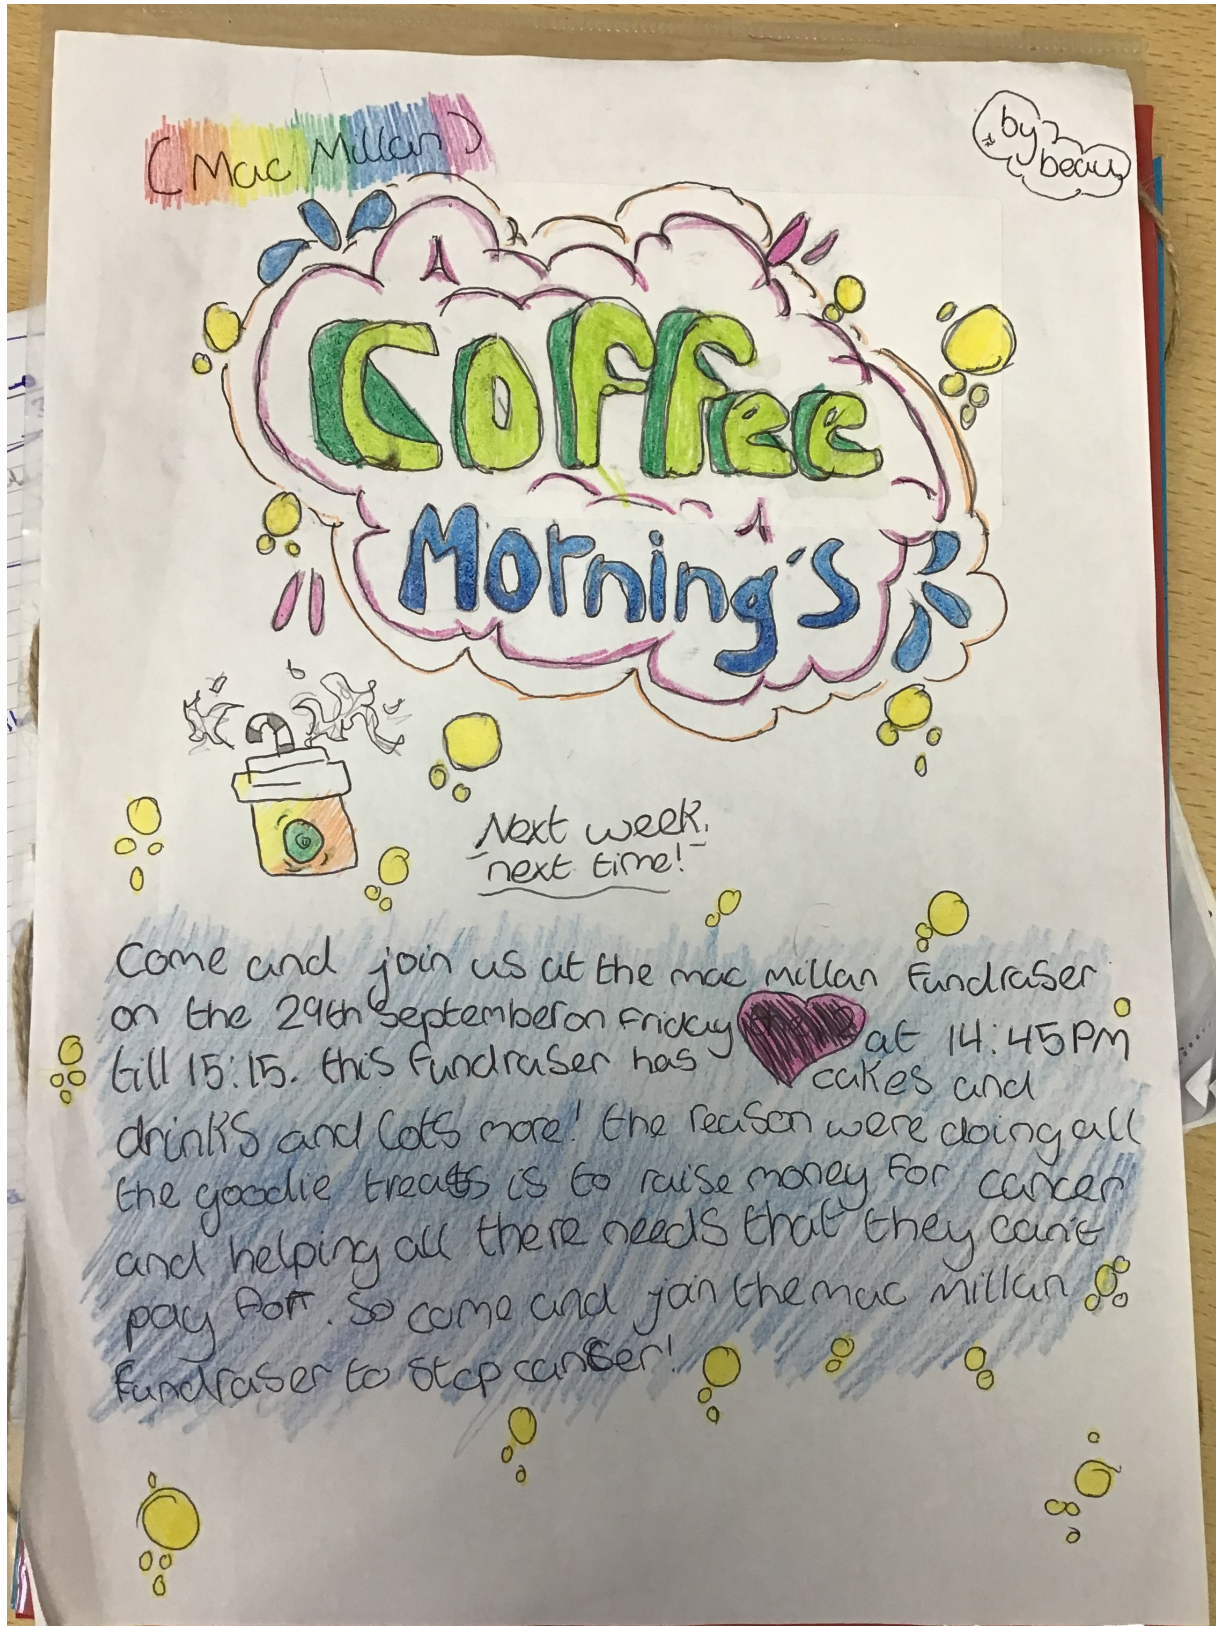 (Mac Millan)
by
beau
Coffee
Morning's
Next week,
next time!
Come and join us at the mac millan fundraser
on the 29th September on friday at 14:45PM
till 15:15. this fundraser has cakes and
drinks and lots more! the reason were doing all
the goodie treats is to raise money for cancer
and helping all there needs that they can't
pay for. So come and join the mac millan
fundraser to stop cancer!